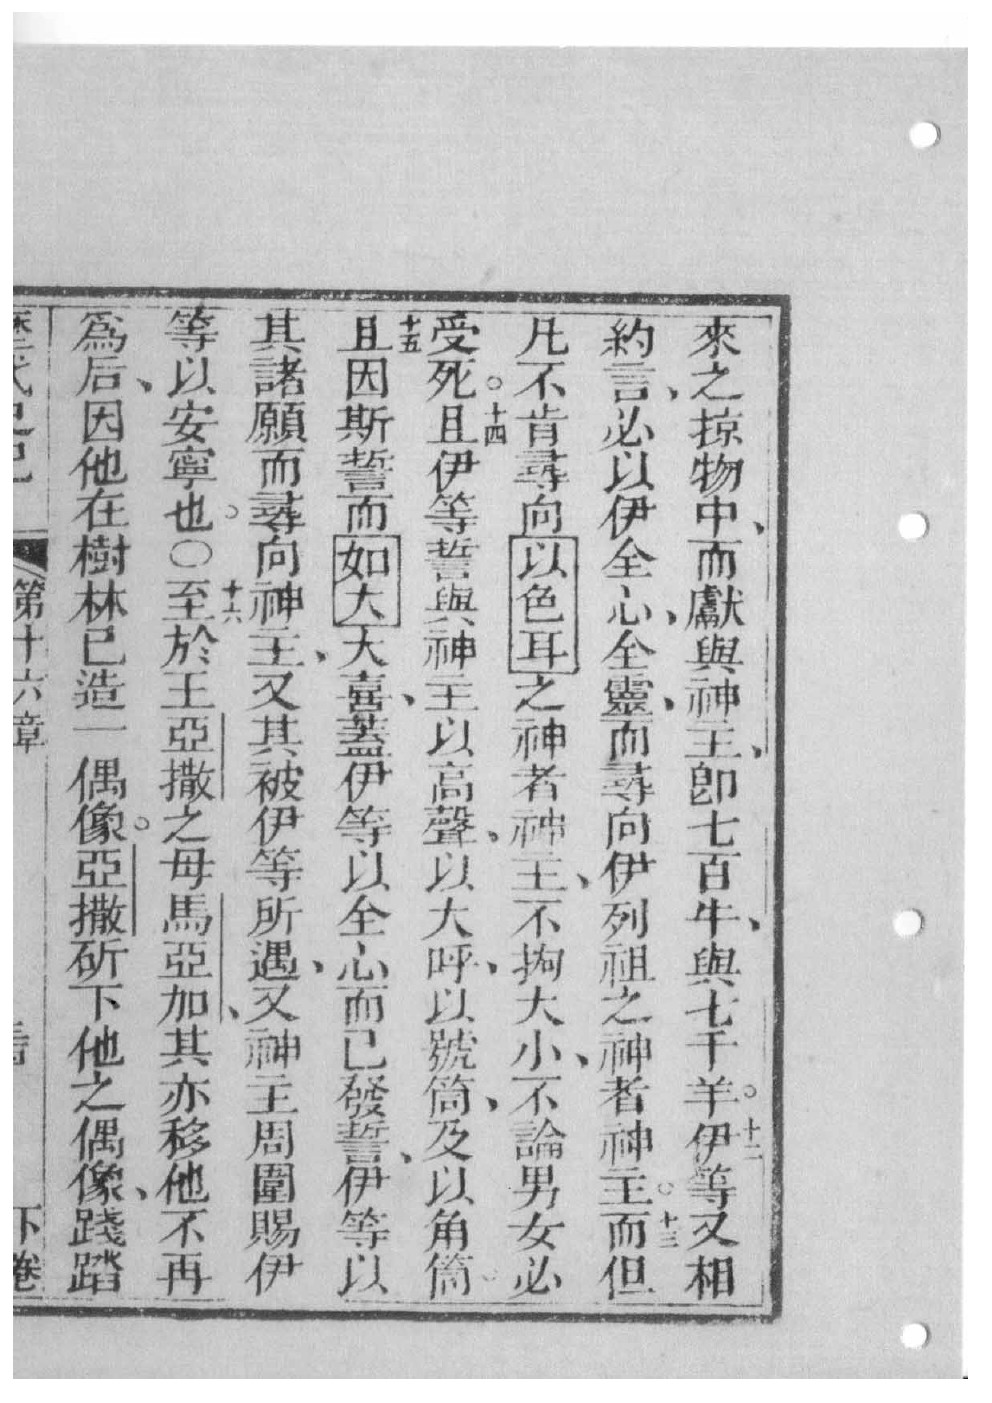 來之掠物中、而獻與神主、卽七百牛、與七千羊。十二伊等又相
約言、必以伊全心、全靈、而尋向伊列祖之神者神主。十三而但
凡不肯尋向以色耳之神者神主、不拘大小、不論男女必
受死。十四且伊等誓與神主以高聲、以大呼、以號筒、及以角筒。
十五且因斯誓而如大大喜、蓋伊等以全心而已發誓、伊等以
其諸願而尋向神主、又其被伊等所遇、又神主周圍賜伊
等以安寧也。○十六至於王亞撒之母馬亞加、其亦移他不再
爲后、因他在樹林已造一偶像。亞撒斫下他之偶像、踐踏
歷代史記 第十六章 下卷